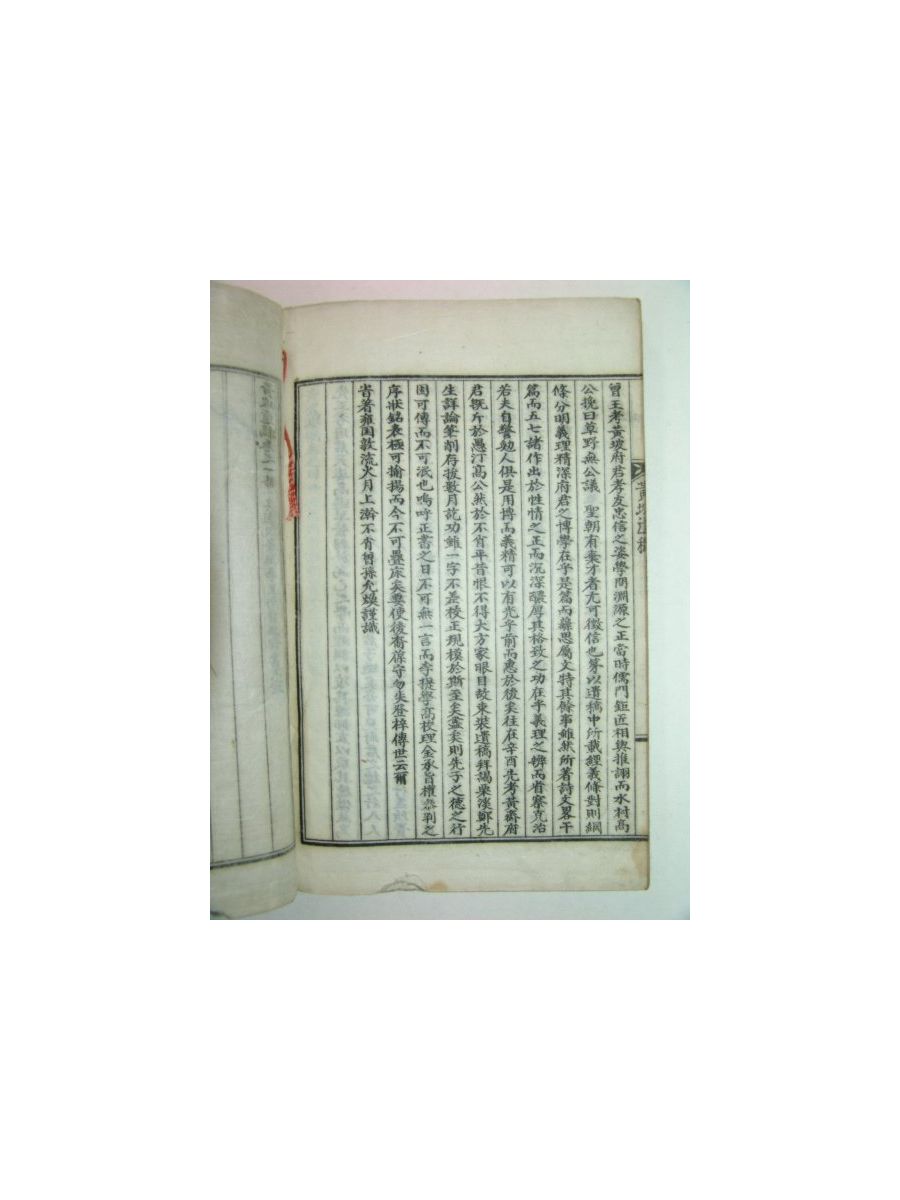 曾王考黃坡府君孝友忠信之姿學問淵源之正當時儒門鉅匠相與推詡而水村高
公挽曰草野無公議 聖朝有棄才者尤可徵信也箚以遺稿中所載經義條對則綱
條分明義理精深府君之博學在乎是篇而藻思屬文特其餘事雖然所著詩文畧干
篇而五七諸作出於性情之正而沉深醲厚其格致之功在乎義理之辨而省察克治
若夫自警勉人俱是用博而義精可以有光乎前而惠於後矣往在辛酉先考黃齋府
君旣斥於愚汀高公然於不肖年昔恨不得大方家眼目故束裝遺稿拜謁栗溪鄭先
生詳論筆削存拔數月訖功雖一字不差校正現模於斯至矣盡矣則先子之德之行
固可傳而不可泯也嗚呼正書之日不可無一言而李提學高校理金承旨權參判之
序狀銘表極可揄揚而今不可疊床矣要使後裔葆守勿失登梓傳世云爾
旹著雍困敦流火月上澣不肖曾孫允煥謹識
黃坡遺稿